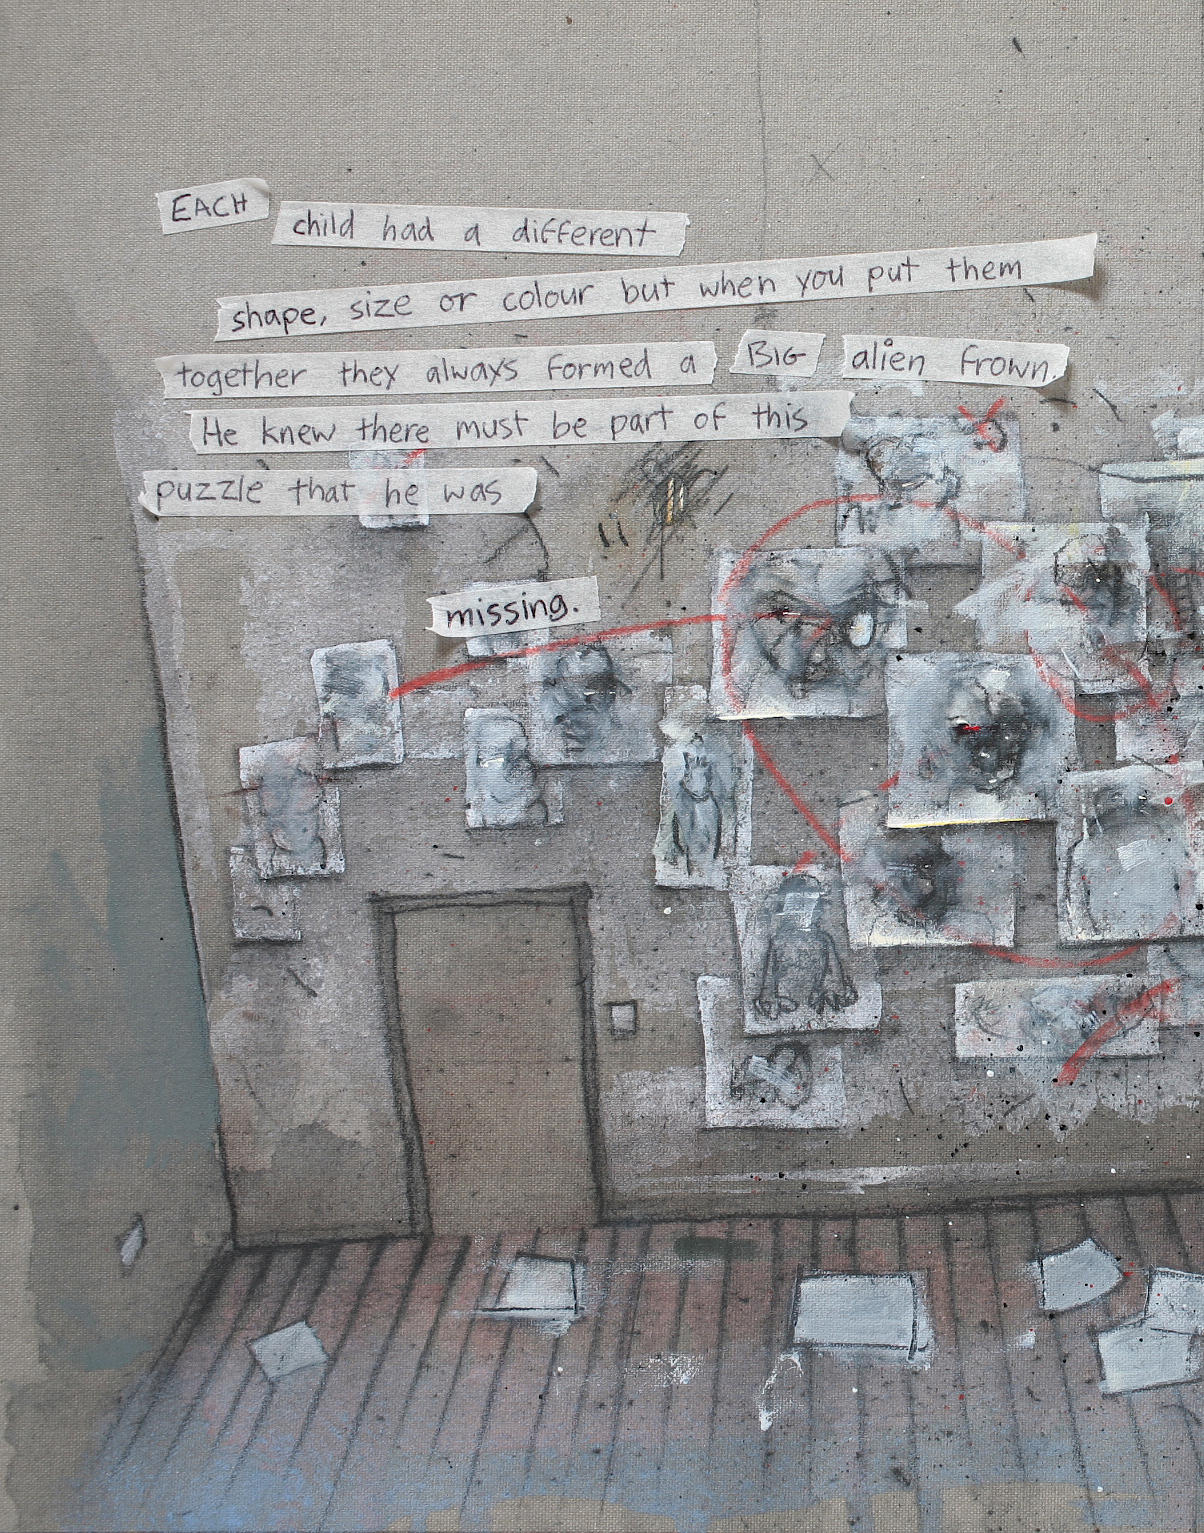 EACH child had a different
shape, size or colour but when you put them
together they always formed a BIG alien frown.
He knew there must be part of this
puzzle that he was
missing.